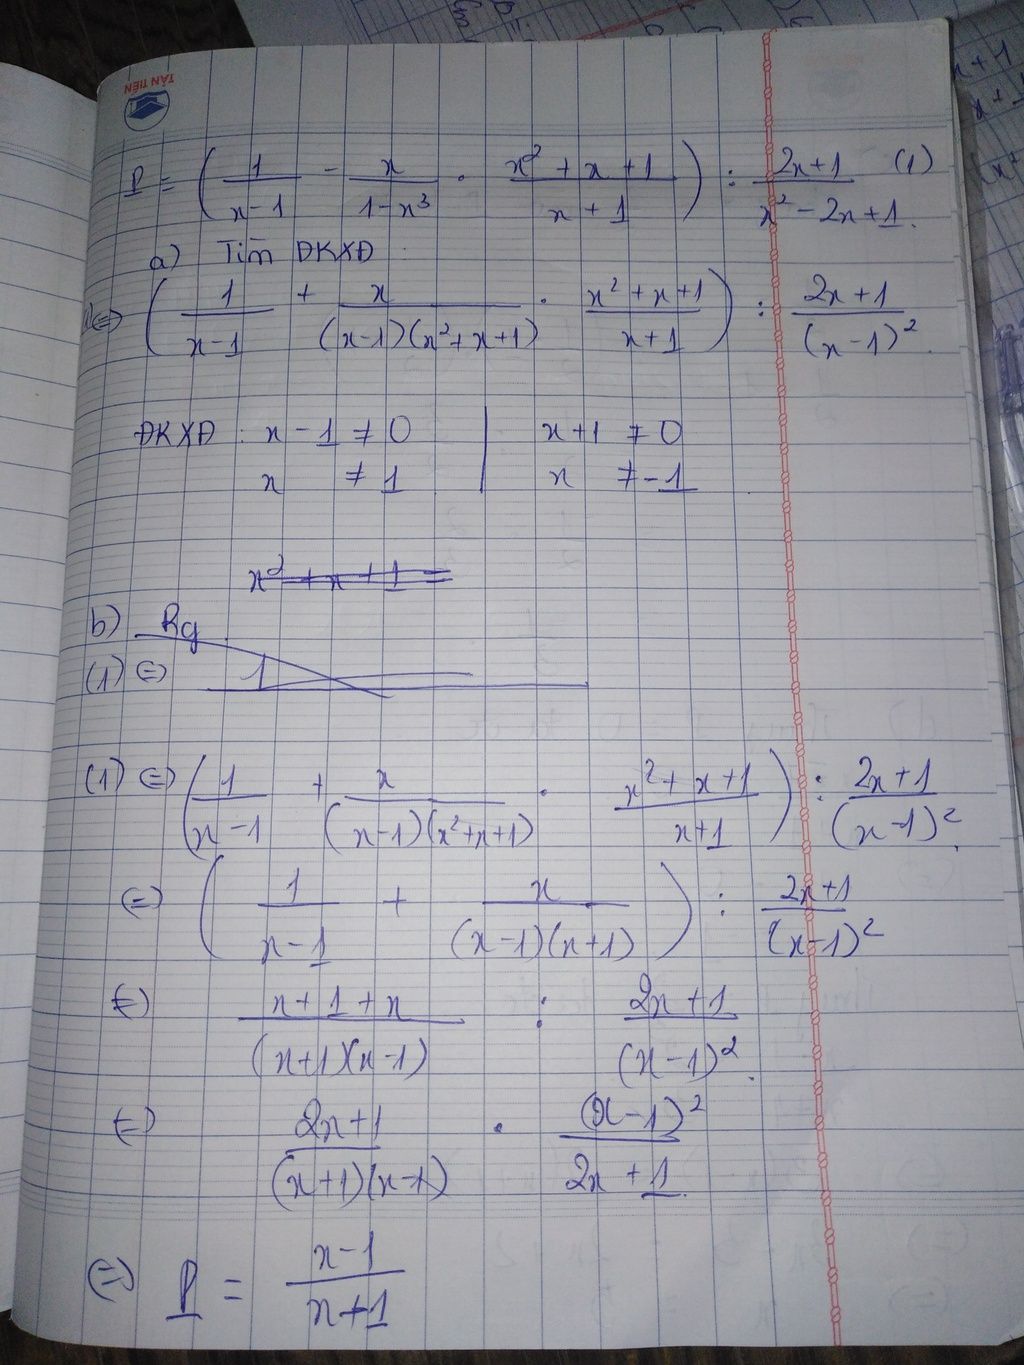 TÂN TIẾN
P = (1/(x-1) - x/(1-x³) . (x²+x+1)/(x+1)) : (2x+1)/(x²-2x+1) (1)
a) Tìm ĐKXĐ :
(1) ⇔ (1/(x-1) + x/((x-1)(x²+x+1)) . (x²+x+1)/(x+1)) : (2x+1)/(x-1)²
ĐKXĐ : x-1 ≠ 0 | x+1 ≠ 0
x ≠ 1 | x ≠ -1
x²+x+1 =
b) Rg
(1) ⇔ 1
(1) ⇔ (1/(x-1) + x/((x-1)(x²+x+1)) . (x²+x+1)/(x+1)) : (2x+1)/(x-1)²
⇔ (1/(x-1) + x/((x-1)(x+1))) : (2x+1)/(x-1)²
⇔ (x+1+x)/((x+1)(x-1)) : (2x+1)/(x-1)²
⇔ (2x+1)/((x+1)(x-1)) . (x-1)²/(2x+1)
⇔ P = (x-1)/(x+1)